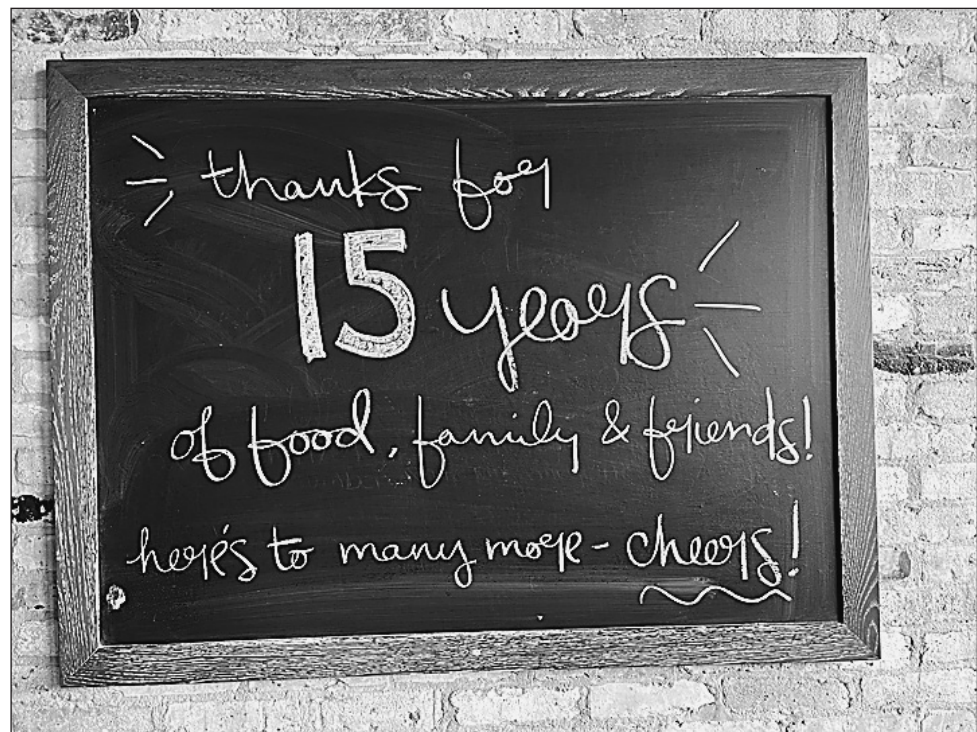 thanks for
15 years
of food, family & friends!
here's to many more - cheers!